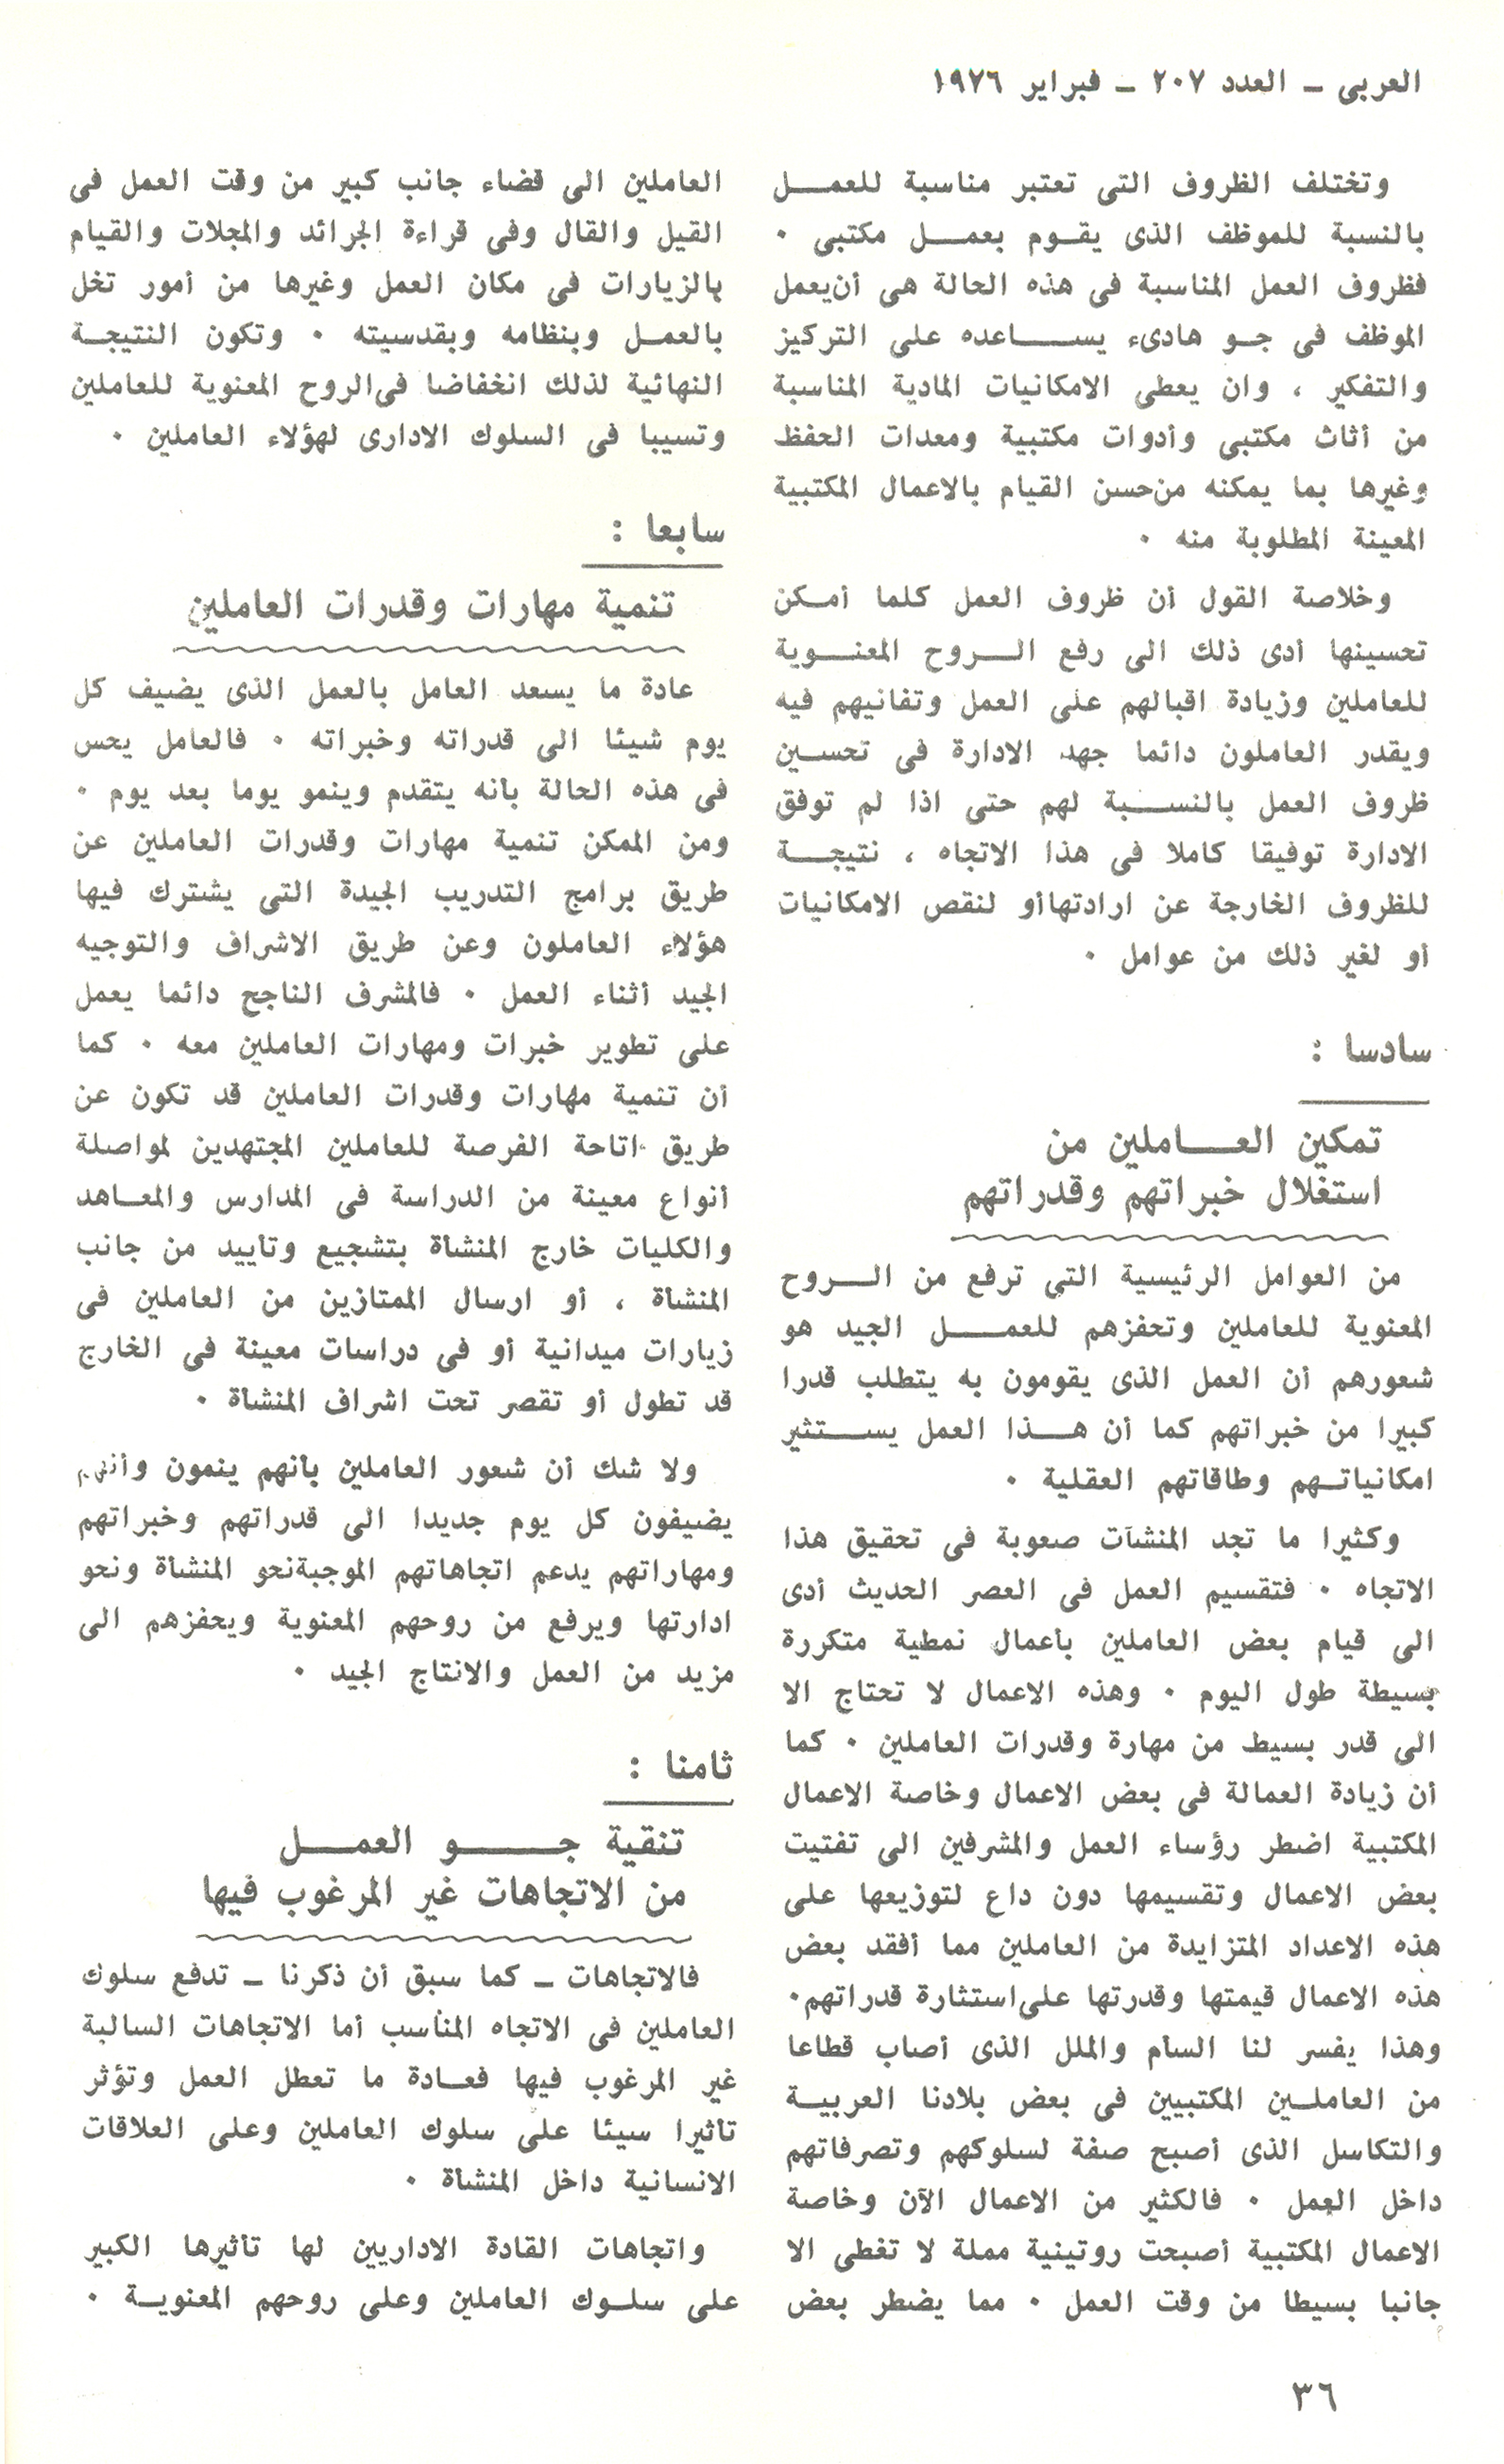 العربى ـ العدد ٢٠٧ ـ فبراير ١٩٧٦
وتختلف الظروف التى تعتبر مناسبة للعمل
بالنسبة للموظف الذى يقوم بعمل مكتبى ٠
فظروف العمل المناسبة فى هذه الحالة هى أن يعمل
الموظف فى جو هادىء يساعده على التركيز
والتفكير ، وان يعطى الامكانيات المادية المناسبة
من أثاث مكتبى وأدوات مكتبية ومعدات الحفظ
وغيرها بما يمكنه من حسن القيام بالاعمال المكتبية
المعينة المطلوبة منه ٠
وخلاصة القول أن ظروف العمل كلما أمكن
تحسينها أدى ذلك الى رفع الروح المعنوية
للعاملين وزيادة اقبالهم على العمل وتفانيهم فيه
ويقدر العاملون دائما جهد الادارة فى تحسين
ظروف العمل بالنسبة لهم حتى اذا لم توفق
الادارة توفيقا كاملا فى هذا الاتجاه ، نتيجة
للظروف الخارجة عن ارادتها أو لنقص الامكانيات
أو لغير ذلك من عوامل ٠
سادسا :
تمكين العاملين من
استغلال خبراتهم وقدراتهم
من العوامل الرئيسية التى ترفع من الروح
المعنوية للعاملين وتحفزهم للعمل الجيد هو
شعورهم أن العمل الذى يقومون به يتطلب قدرا
كبيرا من خبراتهم كما أن هذا العمل يستثير
امكانياتهم وطاقاتهم العقلية ٠
وكثيرا ما تجد المنشآت صعوبة فى تحقيق هذا
الاتجاه ٠ فتقسيم العمل فى العصر الحديث أدى
الى قيام بعض العاملين بأعمال نمطية متكررة
بسيطة طول اليوم ٠ وهذه الاعمال لا تحتاج الا
الى قدر بسيط من مهارة وقدرات العاملين ٠ كما
أن زيادة العمالة فى بعض الاعمال وخاصة الاعمال
المكتبية اضطر رؤساء العمل والمشرفين الى تفتيت
بعض الاعمال وتقسيمها دون داع لتوزيعها على
هذه الاعداد المتزايدة من العاملين مما أفقد بعض
هذه الاعمال قيمتها وقدرتها على استثارة قدراتهم٠
وهذا يفسر لنا السأم والملل الذى أصاب قطاعا
من العاملين المكتبيين فى بعض بلادنا العربية
والتكاسل الذى أصبح صفة لسلوكهم وتصرفاتهم
داخل العمل ٠ فالكثير من الاعمال الآن وخاصة
الاعمال المكتبية أصبحت روتينية مملة لا تغطى الا
جانبا بسيطا من وقت العمل ٠ مما يضطر بعض
العاملين الى قضاء جانب كبير من وقت العمل فى
القيل والقال وفى قراءة الجرائد والمجلات والقيام
بالزيارات فى مكان العمل وغيرها من أمور تخل
بالعمل وبنظامه وبقدسيته ٠ وتكون النتيجة
النهائية لذلك انخفاضا فى الروح المعنوية للعاملين
وتسيبا فى السلوك الادارى لهؤلاء العاملين ٠
سابعا :
تنمية مهارات وقدرات العاملين
عادة ما يسعد العامل بالعمل الذى يضيف كل
يوم شيئا الى قدراته وخبراته ٠ فالعامل يحس
فى هذه الحالة بأنه يتقدم وينمو يوما بعد يوم ٠
ومن الممكن تنمية مهارات وقدرات العاملين عن
طريق برامج التدريب الجيدة التى يشترك فيها
هؤلاء العاملون وعن طريق الاشراف والتوجيه
الجيد أثناء العمل ٠ فالمشرف الناجح دائما يعمل
على تطوير خبرات ومهارات العاملين معه ٠ كما
أن تنمية مهارات وقدرات العاملين قد تكون عن
طريق اتاحة الفرصة للعاملين المجتهدين لمواصلة
أنواع معينة من الدراسة فى المدارس والمعاهد
والكليات خارج المنشأة بتشجيع وتأييد من جانب
المنشأة ، أو ارسال الممتازين من العاملين فى
زيارات ميدانية أو فى دراسات معينة فى الخارج
قد تطول أو تقصر تحت اشراف المنشأة ٠
ولا شك أن شعور العاملين بأنهم ينمون وأنهم
يضيفون كل يوم جديدا الى قدراتهم وخبراتهم
ومهاراتهم يدعم اتجاهاتهم الموجبة نحو المنشأة ونحو
ادارتها ويرفع من روحهم المعنوية ويحفزهم الى
مزيد من العمل والانتاج الجيد ٠
ثامنا :
تنقية جو العمل
من الاتجاهات غير المرغوب فيها
فالاتجاهات ـ كما سبق أن ذكرنا ـ تدفع سلوك
العاملين فى الاتجاه المناسب أما الاتجاهات السالبة
غير المرغوب فيها فعادة ما تعطل العمل وتؤثر
تأثيرا سيئا على سلوك العاملين وعلى العلاقات
الانسانية داخل المنشأة ٠
واتجاهات القادة الاداريين لها تأثيرها الكبير
على سلوك العاملين وعلى روحهم المعنوية ٠
٣٦